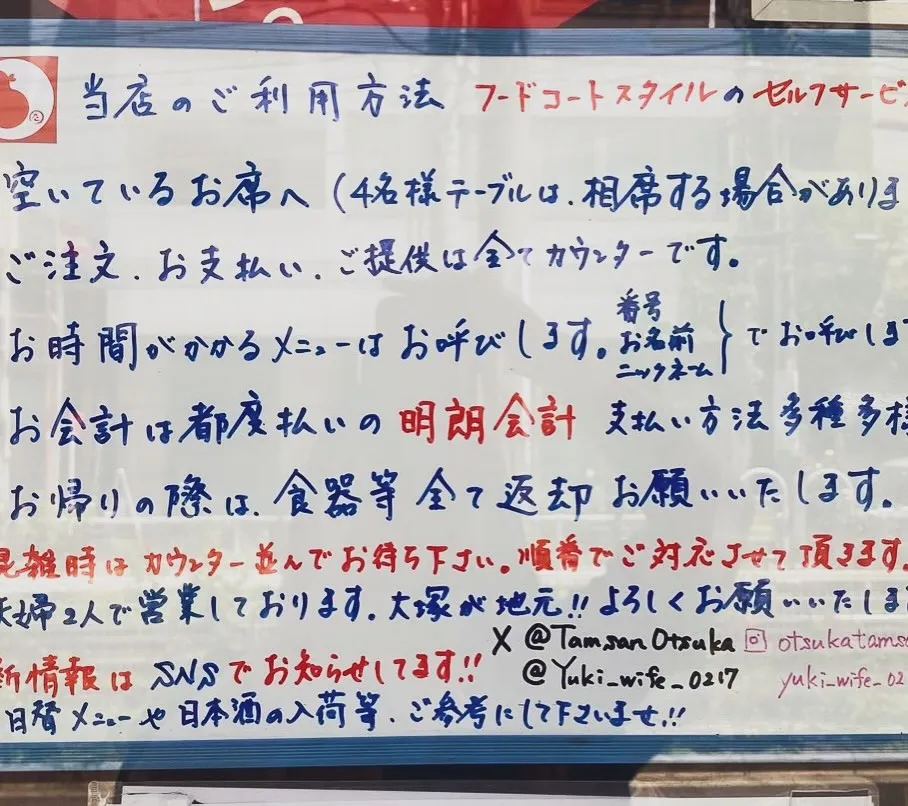 当店のご利用方法 フードコートスタイルのセルフサービ
空いているお席へ (4名様テーブルは、相席する場合がありま
ご注文、お支払い、ご提供は全てカウンターです。
お時間がかかるメニューはお呼びします。番号 お名前 ニックネーム } でお呼びしま
お会計は都度払いの明朗会計 支払い方法多種多様
お帰りの際は、食器等全て返却お願いいたします。
混雑時はカウンター並んでお待ち下さい。順番でご対応させて頂きます。
夫婦2人で営業しております。大塚が地元!! よろしくお願いいたしま
X @TamsanOtsuka otsukatamsa
新情報は SNSでお知らせしてます!! @Yuki_wife_0217 yuki_wife_02
日替メニューや日本酒の入荷等、ご参考にして下さいませ!!